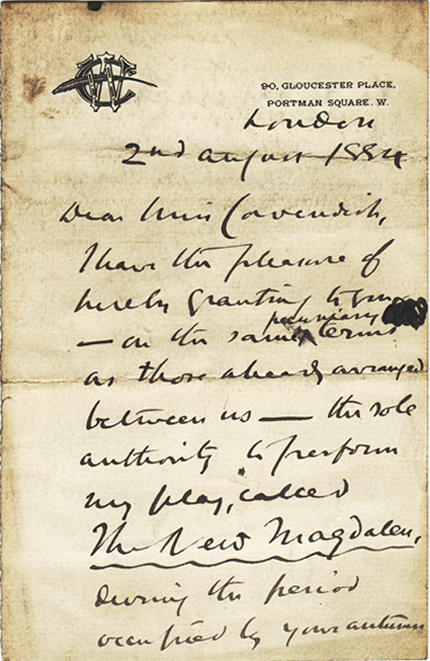 WC
90, GLOUCESTER PLACE,
PORTMAN SQUARE. W.
London
2nd August 1884
Dear Miss Cavendish,
I have the pleasure of
hereby granting to you
pecuniary
— on the same terms
as those already arranged
between us — the sole
authority to perform
my play, called
The New Magdalen,
during the period
occupied by your autumn